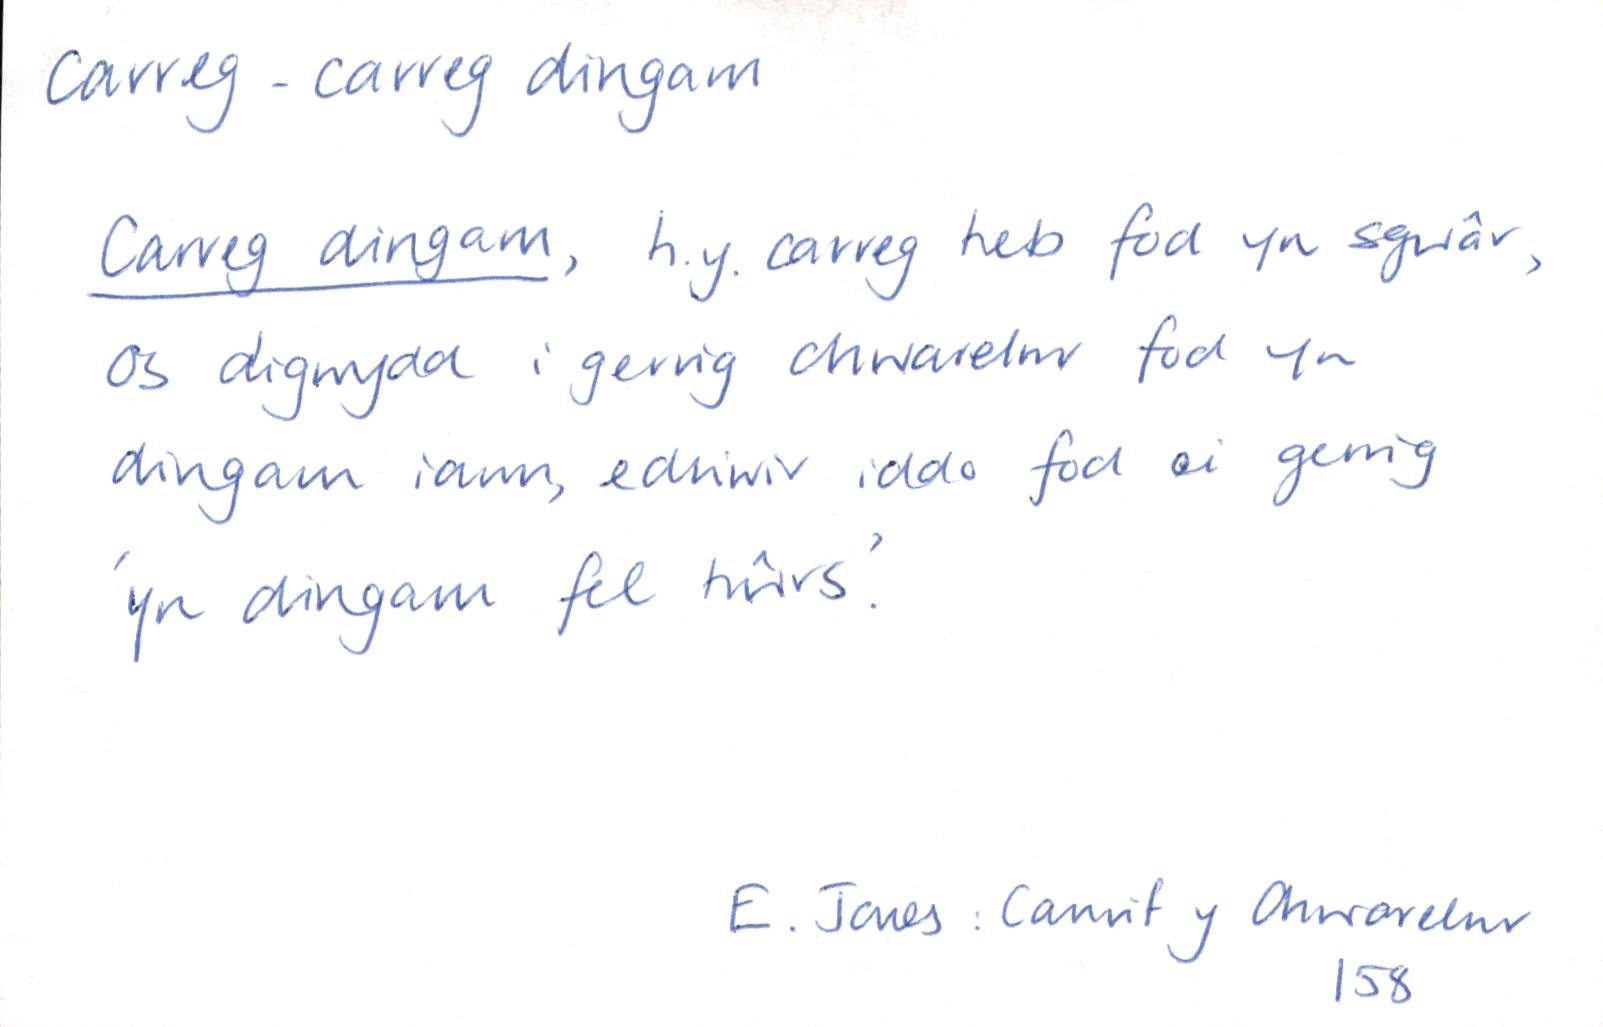 Carreg - carreg dingam
Carreg dingam, h.y. carreg heb fod yn sgwâr,
os digwydd i gerrig chwarelwr fod yn
dingam iawn, edliwir iddo fod ei gerrig
'yn dingam fel
E. Jones: Canrif y Chwarelwr
158